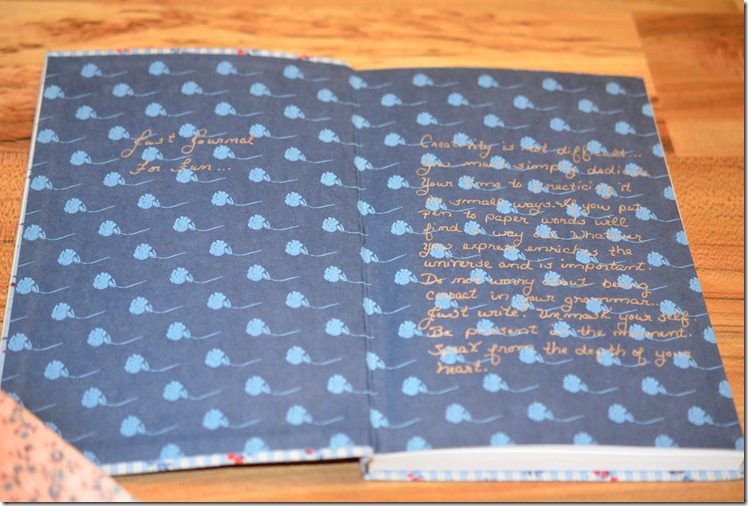 Just Journal
For Fun...
Creativity is not difficult...
You must simply dedicate
Your time to practicing it
in small ways. If you put
pen to paper words will
find a way out. Whatever
you express enriches the
universe and is important.
Do not worry about being
correct in your grammar.
Just write. Unmask your self.
Be present in the moment.
Speak from the depth of your
heart.